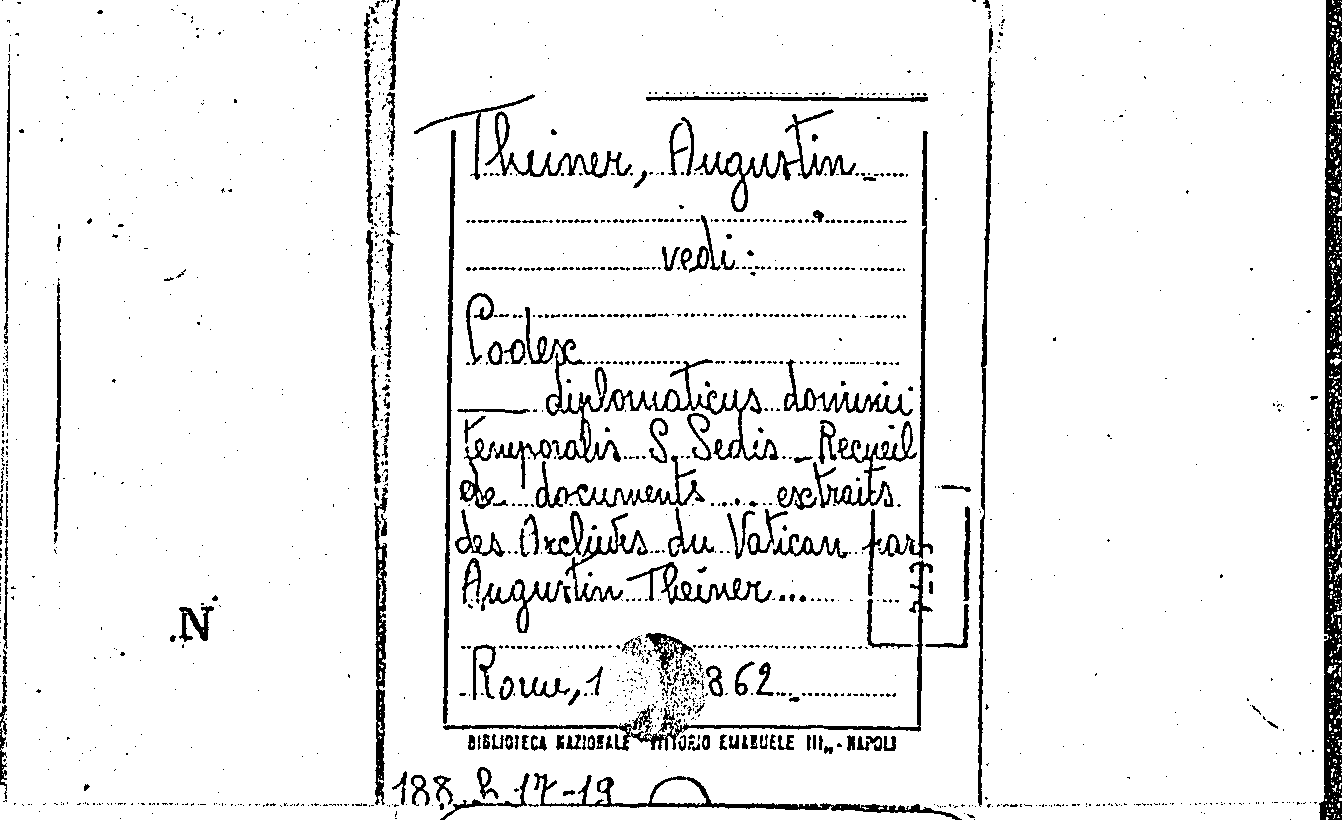 Theiner, Augustin_
vedi:
Codex
___ diplomaticus dominii
temporalis S. Sedis _ Recueil
de documents ... extraits
des Archives du Vatican par
Augustin Theiner...
Rome, 1 862_
BIBLIOTECA NAZIONALE VITTORIO EMANUELE III„ - NAPOLI
188. h. 17-19
N